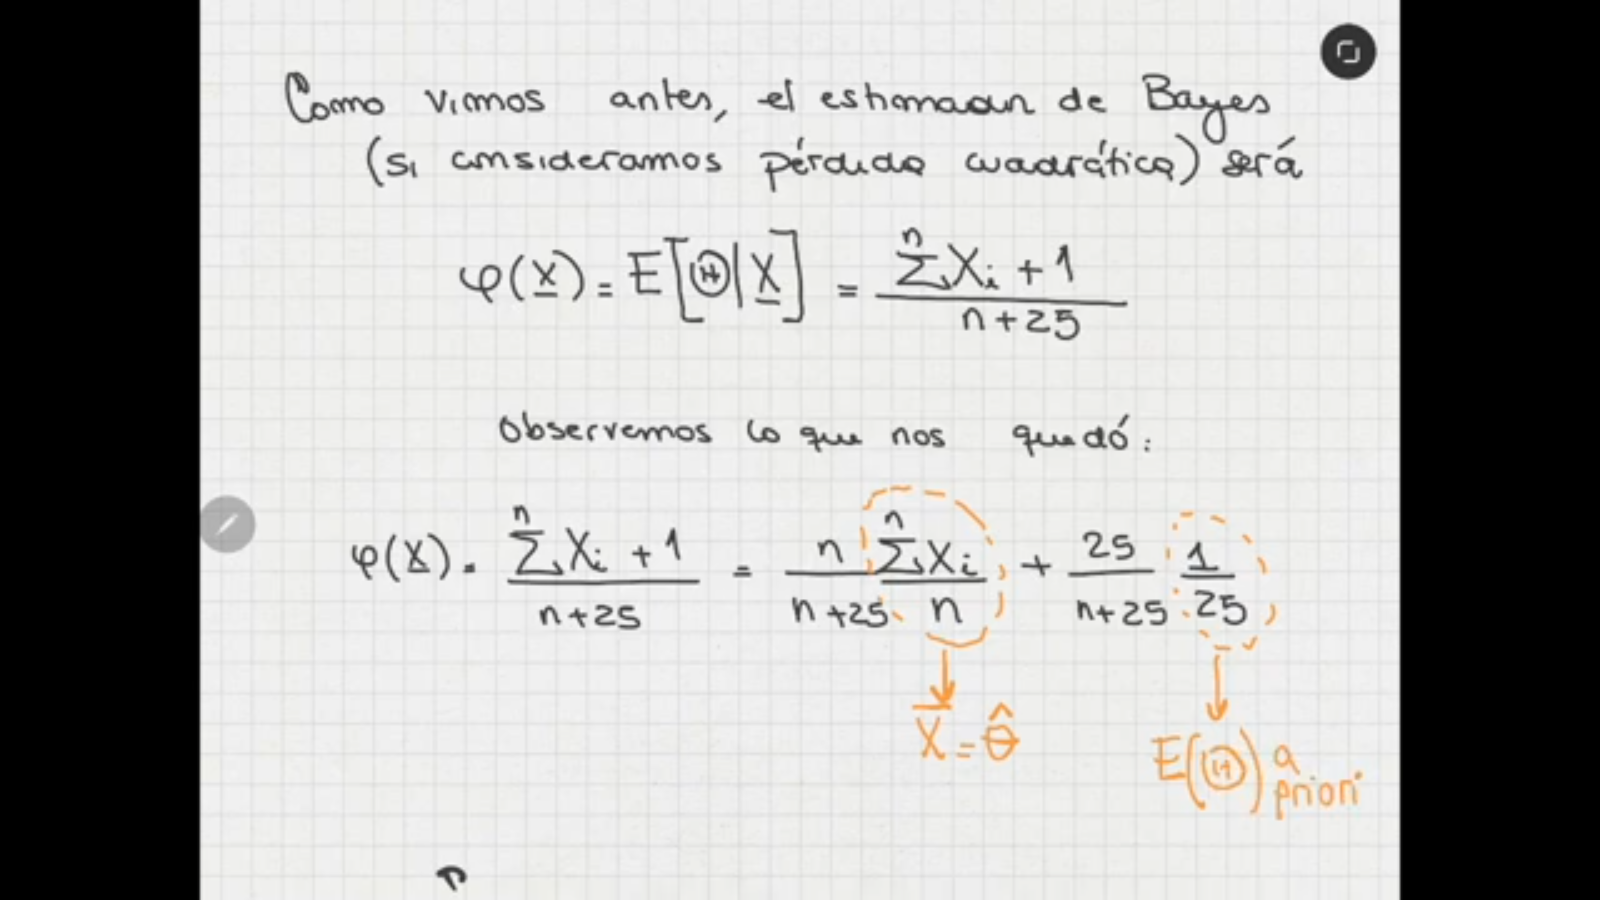 Como vimos antes, el estimador de Bayes
(si consideramos pérdida cuadrática) será
φ(X) = E[Θ|X] = (∑ⁿ Xᵢ + 1) / (n+25)
Observemos lo que nos quedó:
φ(X) = (∑ⁿ Xᵢ + 1) / (n+25) = n/(n+25) (∑ⁿ Xᵢ)/n + 25/(n+25) 1/25
X̄ = θ̂
E(Θ) a priori